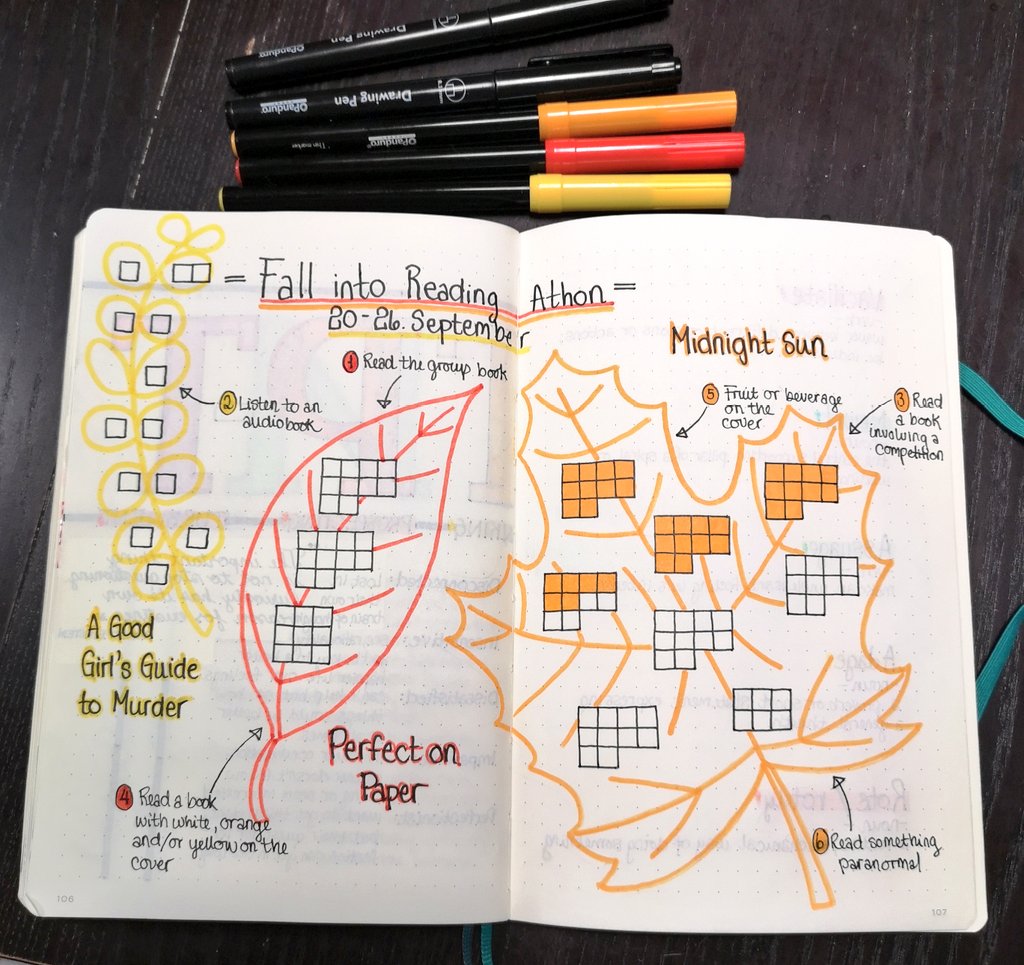 Drawing Pen
Panduro
Drawing Pen
Panduro
Panduro
Thin marker
= Fall into Reading Athon =
20-26. September
Midnight Sun
1 Read the group book
2 Listen to an
audiobook
5 Fruit or beverage
on the
cover
3 Read
a book
involving a
competition
A Good
Girl's Guide
to Murder
Perfect on
Paper
4 Read a book
with white, orange
and/or yellow on the
cover
6 Read something
paranormal
106
107